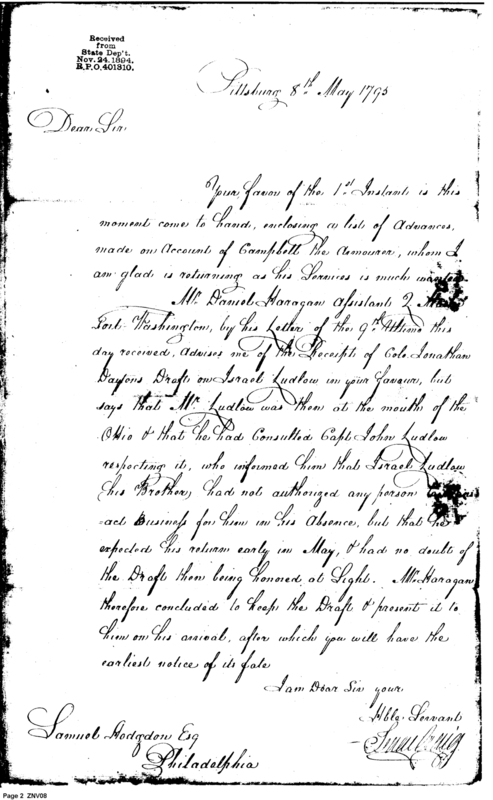 Received
from
State Dep't.
Nov. 24. 1894.
R.P.O. 401310.
Pittsburg 8th May 1793
Dear Sir
Your favor of the 1st Instant is this
moment come to hand, enclosing a list of Advances,
made on Account of Campbell the Armourer, whom I
am glad is returning as his Services is much
Mr. Daniel Haragan Assistant Q.
Fort Washington, by his Letter of the 9th Ultimo this
day received, Advises me of the Receipt of Colo. Jonathan
Daytons Draft on Israel Ludlow in your favour, but
says that Mr. Ludlow was then at the mouth of the
Ohio & that he had Consulted Capt John Ludlow
respecting it, who informed him that Israel Ludlow
his Brother, had not authorized any person
=act Business for him in his Absence, but that he
expected his return early in May, & had no doubt of
the Draft then being honored at Sight. Mr. Haragan
therefore concluded to keep the Draft & present it to
him on his arrival, after which you will have the
earliest notice of its fate
I am Dear Sir your
Hble Servant
Isaac Craig
Samuel Hodgdon Esq
Philadelphia
Page 2 ZNV08